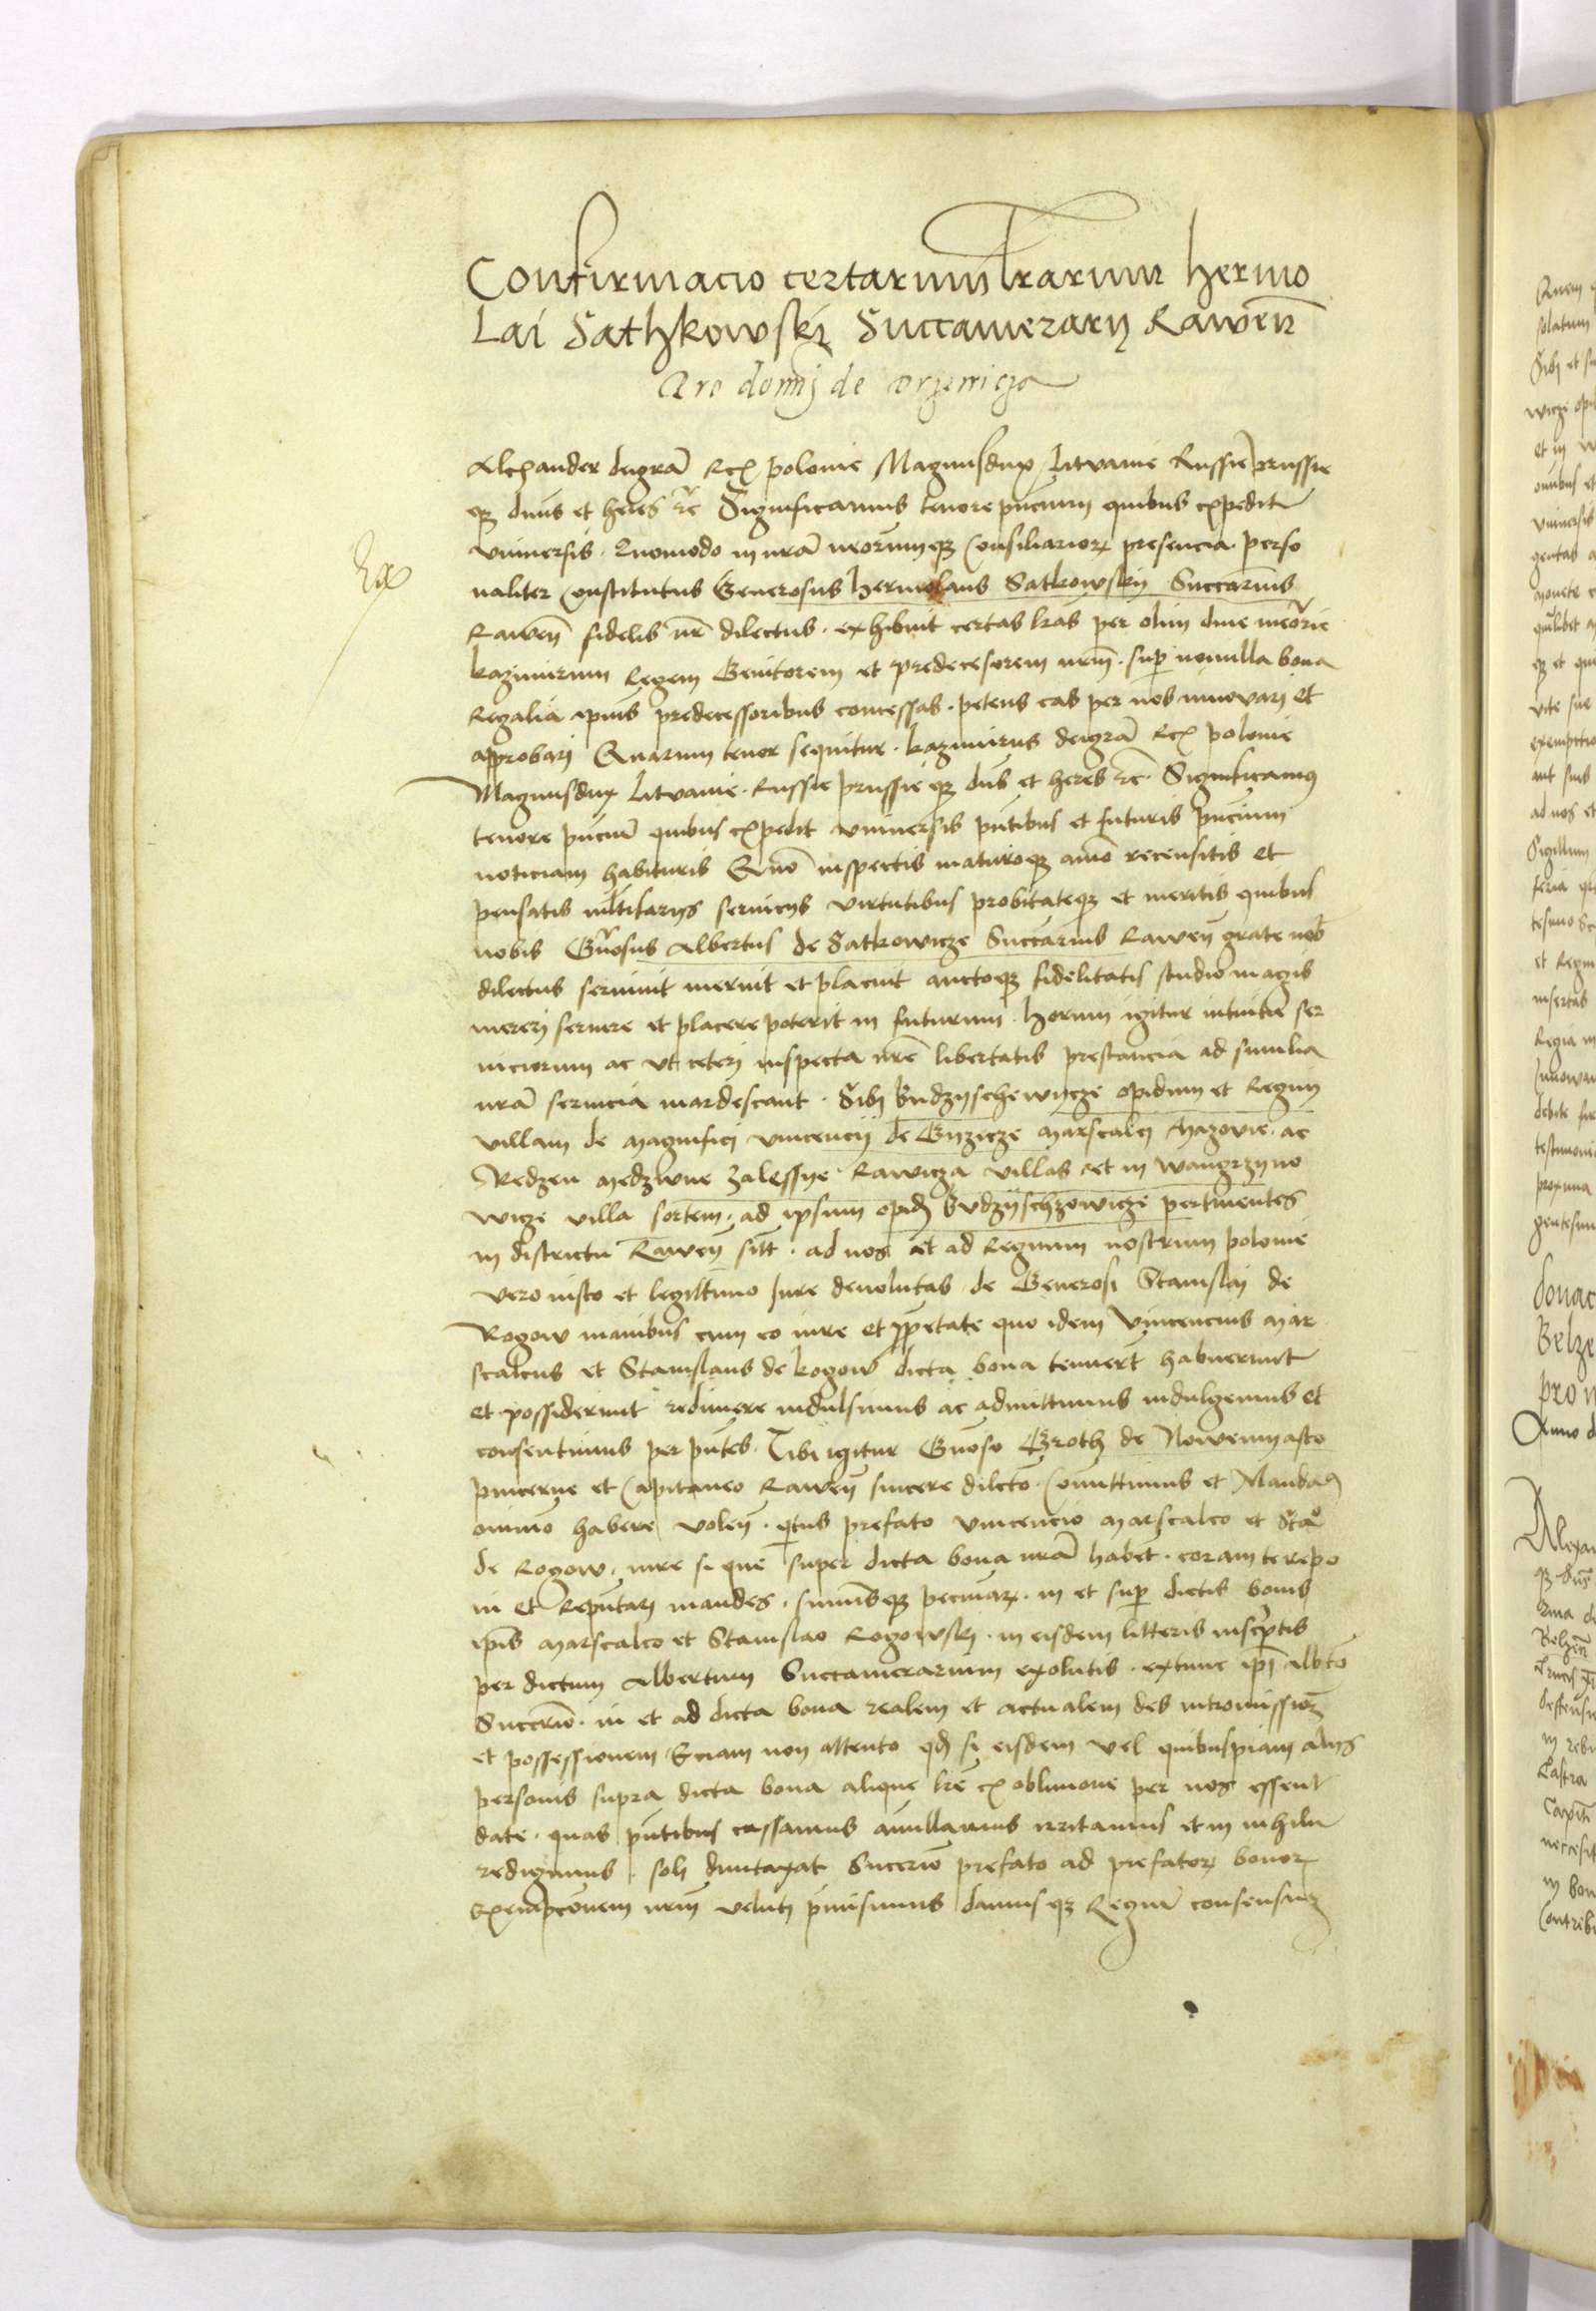 Confirmacio certarum lrarum hermo
lai Sathkowskj Succamerarij Rawen̄
Alexander deigra͞ Rex polonie Magnusdux Litvanie Russie prussie
qȝ dn̄us et heres etc Significamus tenore pn̄cium quibus expedit
vniuersis. Quomodo in nra͞ nrorumqȝ Consiliarioꝝ presencia perso
naliter Constitutus Generosus hermolaus Satkowskij Succarius
Rawen̄ fidelis nr̄ dilectus. exhibuit certas lr̄as per olim diue meo͞rie
kazimirum Regem Genitorem et predecesorem nrm̄. sup̱ nonnulla bona
Regalia ipius predecessoribus concessas. petens eas per nos innovarj et
approbarj Quarum tenor sequitur. kazimirus deigra͞ Rex polonie
Magnusdux Litvanie. Russie prussie qȝ dn̄s et heres etc. Significamus
tenore pn̄ciu͞ quibus expedit vniuersis pn̄tibus et futuris pn̄cium
noticiam habituris Quo͞ inspectis maturoqȝ a͞mo recensitis et
pensatis mltifarijs seruicijs virtutibus probitateqȝ et meritis quibus
nobis Gn̄osus Albertus de Satkowicze Succarius Rawen̄ grate nob̄
dilectus seruiuit meruit et placuit auctoqȝ fidelitatis studio magis
mererj seruire et placere poterit in futurum. horum igitur intuitu͞ ser
uiciorum ac vt ceterj inspecta nr̄e libertatis prestancia ad similia
nra͞ seruicia inardescant. Sibj budzyschewycze opidum et Regnj
villam de magnificj vincencij de Gyzicze marscalcj Mazovie. ac
Redzen medzwne zalessye Rawicza villas et in wangrzyno
wicze villa sortem. ad ipsum opid̄ budzyschzowicze pertinentes
in districtu Rawen̄ sitt. ad nos et ad Regnum nostrum polonie
vero iusto et legittimo Jure deuolutas de Generosi Stanislaj de
Rogow manibus cum eo iure et pp̱etate quo idem Vincencius mar
scalcus et Stanislaus de Rogow dicta bona tenuert̄ habuerunt
et possiderunt redimere indulsimus ac admittimus indulgemus et
consentimus per pn̄tes. Tibi igitur Gn̄oso Groth de Nowemiasto
pincerne et Capitaneo Rawen̄ sincere dilc̄to. Comittimus et Manda͞
omnino habere volen̄. qtus prefato vincencio marscalco et Sta͞o
de Rogow. iure si que super dicta bona nra͞ habet̄. coram te repo
ni et Reputarj mandes. sum̄isqȝ pecuniaꝝ. in et sup̱ dictis bonis
ip̄is marscalco et Stanislao Rogowskj. in eisdem litteris inscriptis
per dictum Albertum Succamerarium exolutis. extunc ip̄i Alb̄to
Succrio͞. in et ad dicta bona realem et actualem des intromissioȝ
et possessionem Eciam non attento qd̄ si eisdem vel quibuspiam alijs
personis supra dicta bona alique lr̄e ex obliuione per nos essent
date. quas pn̄tibus cassamus annullamus irritamus et in nihilu͞
redigimus. soli duntaxat Succrio͞ prefato ad prefatoꝝ bonoꝝ
Exempcionem nrm̄ velutj p̄misimus damusqȝ Regiu͞ consensuȝ